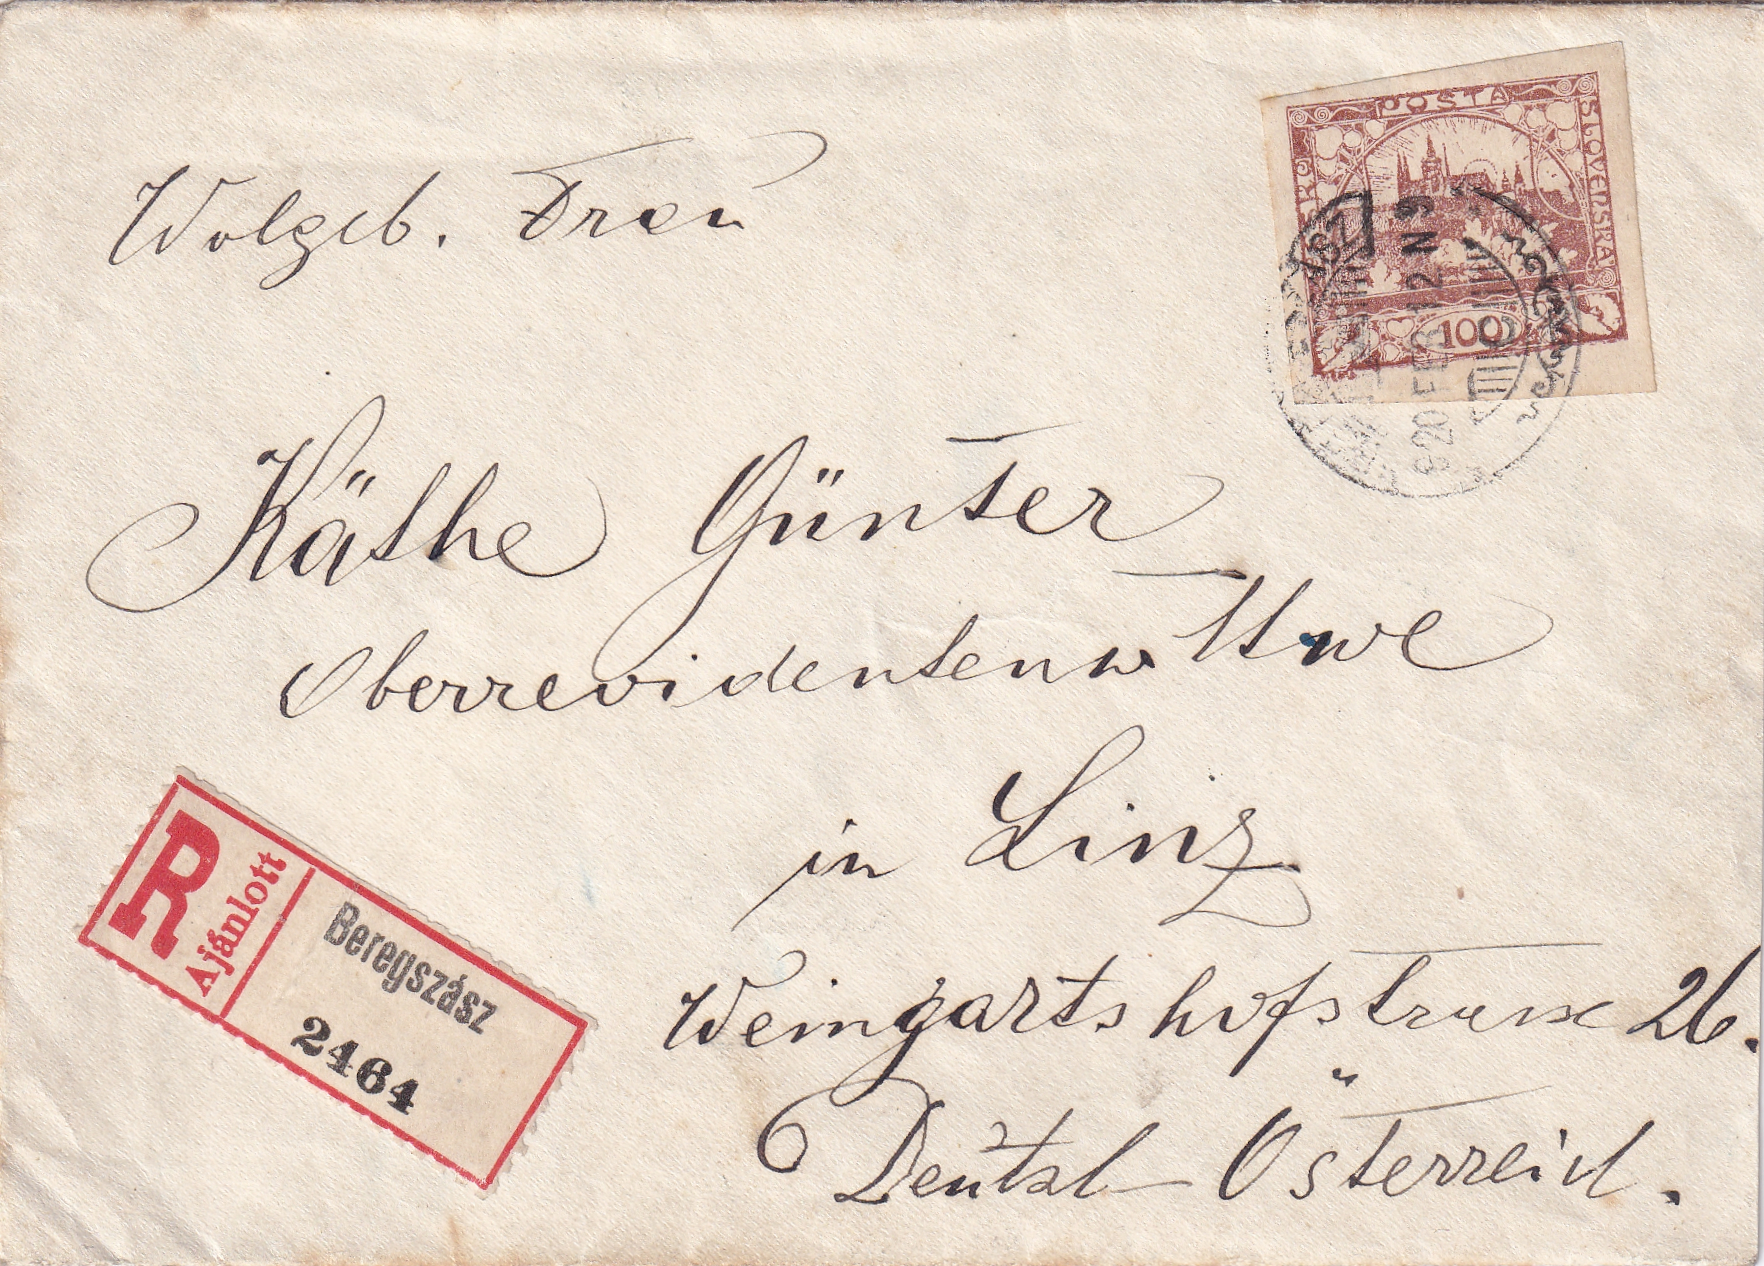 Wolgeb. Frau
POSTA
SLOVENSKÁ
100
920 FEB 12 N 9
Käthe Günter
Oberrevidentenw Ttwe
in Linz
Weingartshofstrasse 26.
Deutsch-Österreich.
R
Ajánlott
Beregszász
2464